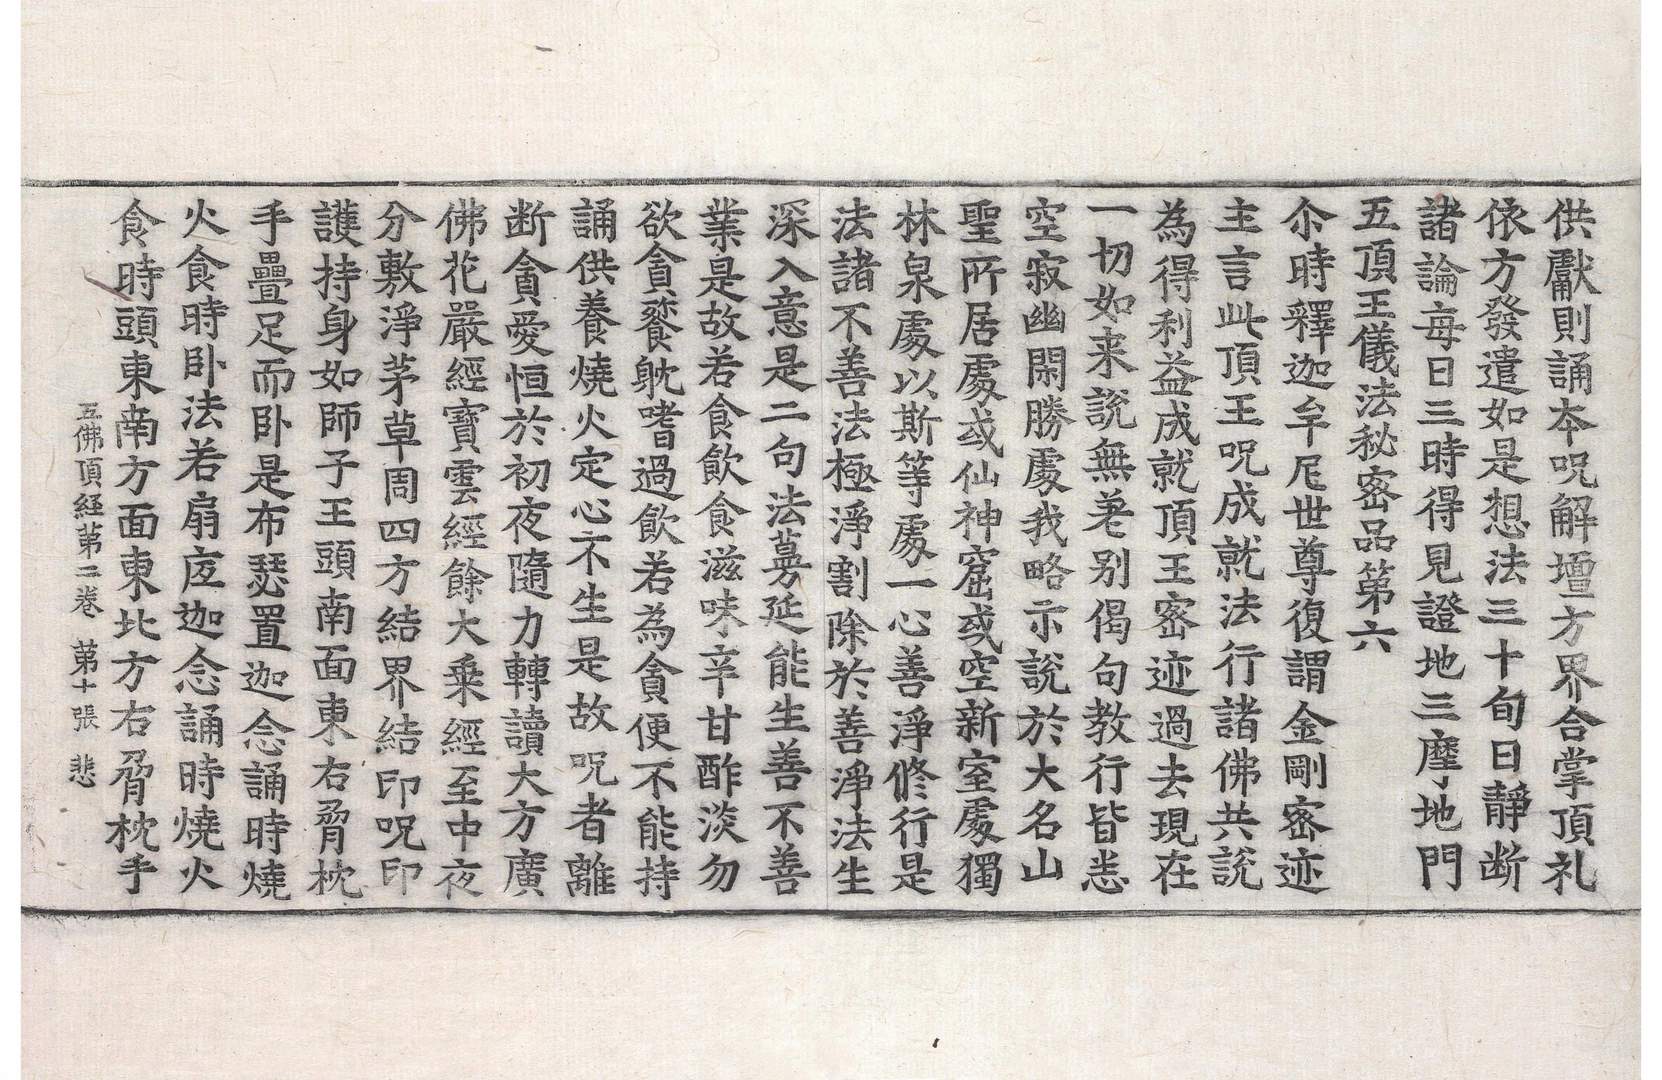 供獻則誦本呪解壇方界合掌頂礼
依方發遣如是想法三十旬日靜断
諸論每日三時得見證地三摩地門
五頂王儀法秘密品第六
尒時釋迦牟尼世尊復謂金剛密迹
主言此頂王呪成就法行諸佛共說
為得利益成就頂王密迹過去現在
一切如来說無差别偈句教行皆悉
空寂幽閑勝處我略示說於大名山
聖所居處或仙神窟或空新室處獨
林泉處以斯等處一心善淨修行是
法諸不善法極淨割除於善淨法生
深入意是二句法募延能生善不善
業是故若食飲食滋味辛甘酢淡勿
欲貪餮躭嗜過飲若為貪便不能持
誦供養燒火定心不生是故呪者離
断貪愛恒於初夜隨力轉讀大方廣
佛花嚴經寶雲經餘大乘經至中夜
分敷淨茅草周四方結界結印呪印
護持身如師子王頭南面東右脅枕
手疊足而卧是布瑟置迦念誦時燒
火食時卧法若扇底迦念誦時燒火
食時頭東南方面東北方右脅枕手
五佛頂経第二卷 第十張 悲